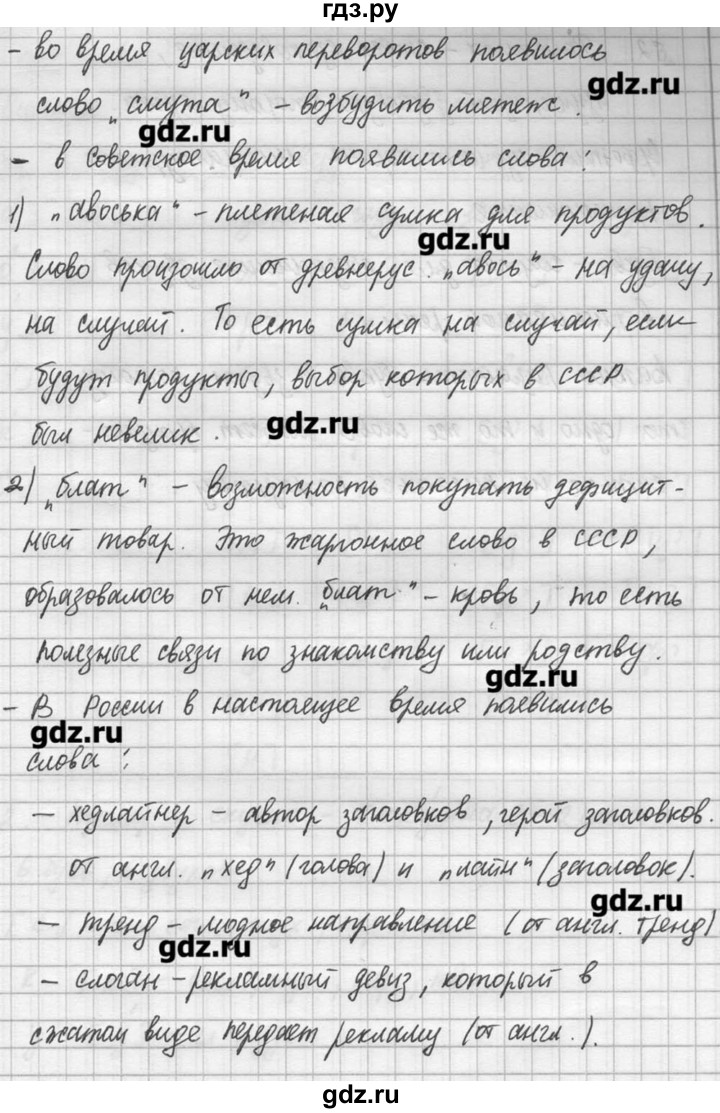 гдз.ру
- во время царских переворотов появилось
слово „смута" - возбудить мятеж.
gdz.ru
gdz.ru
- в советское время появились слова:
1) „авоська" - плетеная сумка для продуктов.
gdz.ru
Слово произошло от древнерус. „авось" - на удачу,
на случай. То есть сумка на случай, если
будут продукты, выбор которых в СССР
был невелик.
gdz.ru
2) „блат" - возможность покупать дефицит-
ный товар. Это жаргонное слово в СССР,
образовалось от нем. „блат" - кровь, то есть
полезные связи по знакомству или родству.
gdz.ru
- В России в настоящее время появились
gdz.ru
слова:
- хедлайнер - автор заголовков, герой заголовков.
от англ. „хед" (голова) и „лайн" (заголовок).
gdz.ru
- тренд - модное направление (от англ. тренд)
gdz.ru
- слоган - рекламный девиз, который в
сжатом виде передает рекламу (от англ.).
gdz.ru